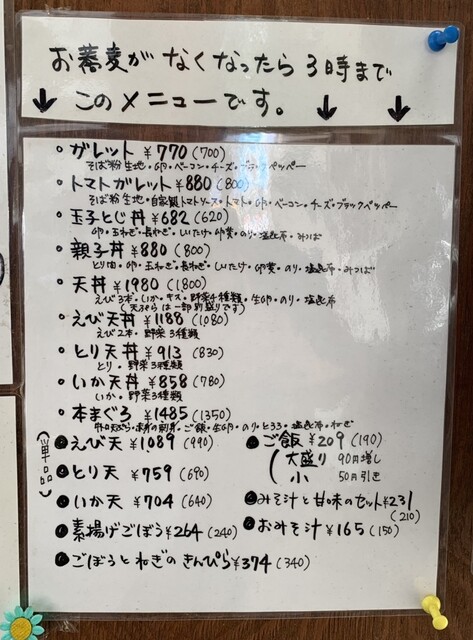 お蕎麦がなくなったら3時まで
↓このメニューです。↓ ↓
・ガレット ¥770(700)
そば粉生地・卵・ベーコン・チーズ・ブラックペッパー
・トマトガレット¥880(800)
そば粉生地・自家製トマトソース・トマト・卵・ベーコン・チーズ・ブラックペッパー
・玉子とじ丼¥682(620)
卵・玉ねぎ・長ねぎ・しいたけ・卵黄・のり・塩昆布・みつば
・親子丼¥880(800)
とり肉・卵・玉ねぎ・長ねぎ・しいたけ・卵黄・のり・塩昆布・みつば
・天丼¥1980(1800)
えび3本・いか・キス・野菜4種類・生卵・のり・塩昆布
(天ぷらは一部別盛りです)
・えび天丼¥1188(1080)
えび2本・野菜3種類
・とり天丼¥913(830)
とり・野菜3種類
・いか天丼¥858(780)
いか・野菜3種類
・本まぐろ¥1485(1350)
の刺身・ご飯・生卵・のり・とろろ・塩昆布・ねぎ
(単品)
●えび天¥1089(990)
●とり天¥759(690)
●いか天¥704(640)
●素揚げごぼう¥264(240)
●ごぼうとねぎのきんぴら¥374(340)
●ご飯¥209(190)
(大盛り 90円増し
小 50円引き
●みそ汁と甘味のセット¥231
(210)
●おみそ汁¥165(150)